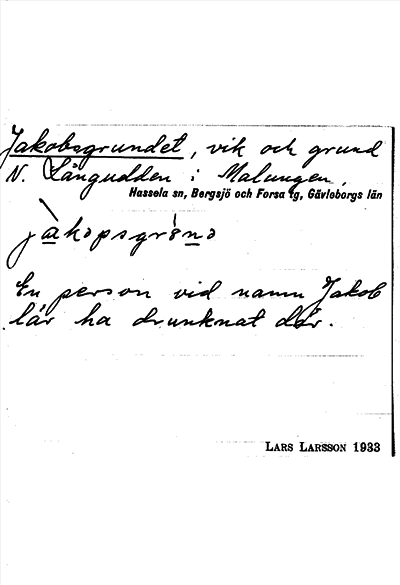 Jakobsgrundet, vik och grund
N. Långudden i Malungen,
Hassela sn, Bergsjö och Forsa tg, Gävleborgs län
En person vid namn Jakob
lär ha drunknat där.
LARS LARSSON 1933